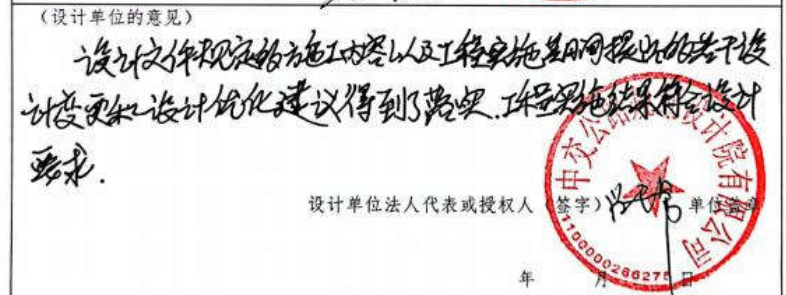 (设计单位的意见)
设计文件规定的施工内容以及工程实施期间提出的若干设
计变更和设计优化建议得到了落实.工程实施结果符合设计
要求.
设计单位法人代表或授权人(签字) 单位盖章
年 月 日
中交公路规划设计院有限公司
1100000286275